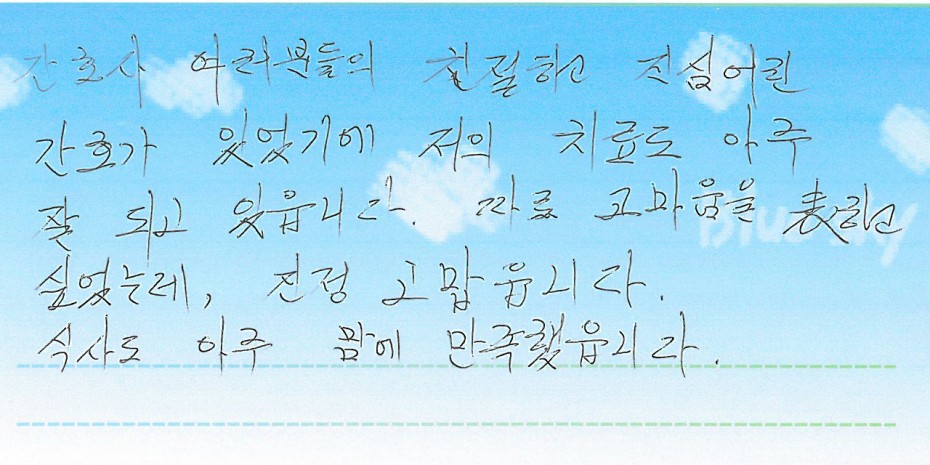 간호사 여러분들의 친절하고 진심어린
간호가 있었기에 저의 치료도 아주
잘 되고 있읍니다. 따로 고마움을 表하고
Blue sky
싶었는데, 진정 고맙읍니다.
식사도 아주 맘에 만족했읍니다.